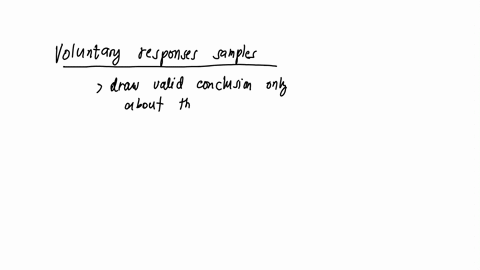 Voluntary responses samples
> draw valid conclusion only
about th